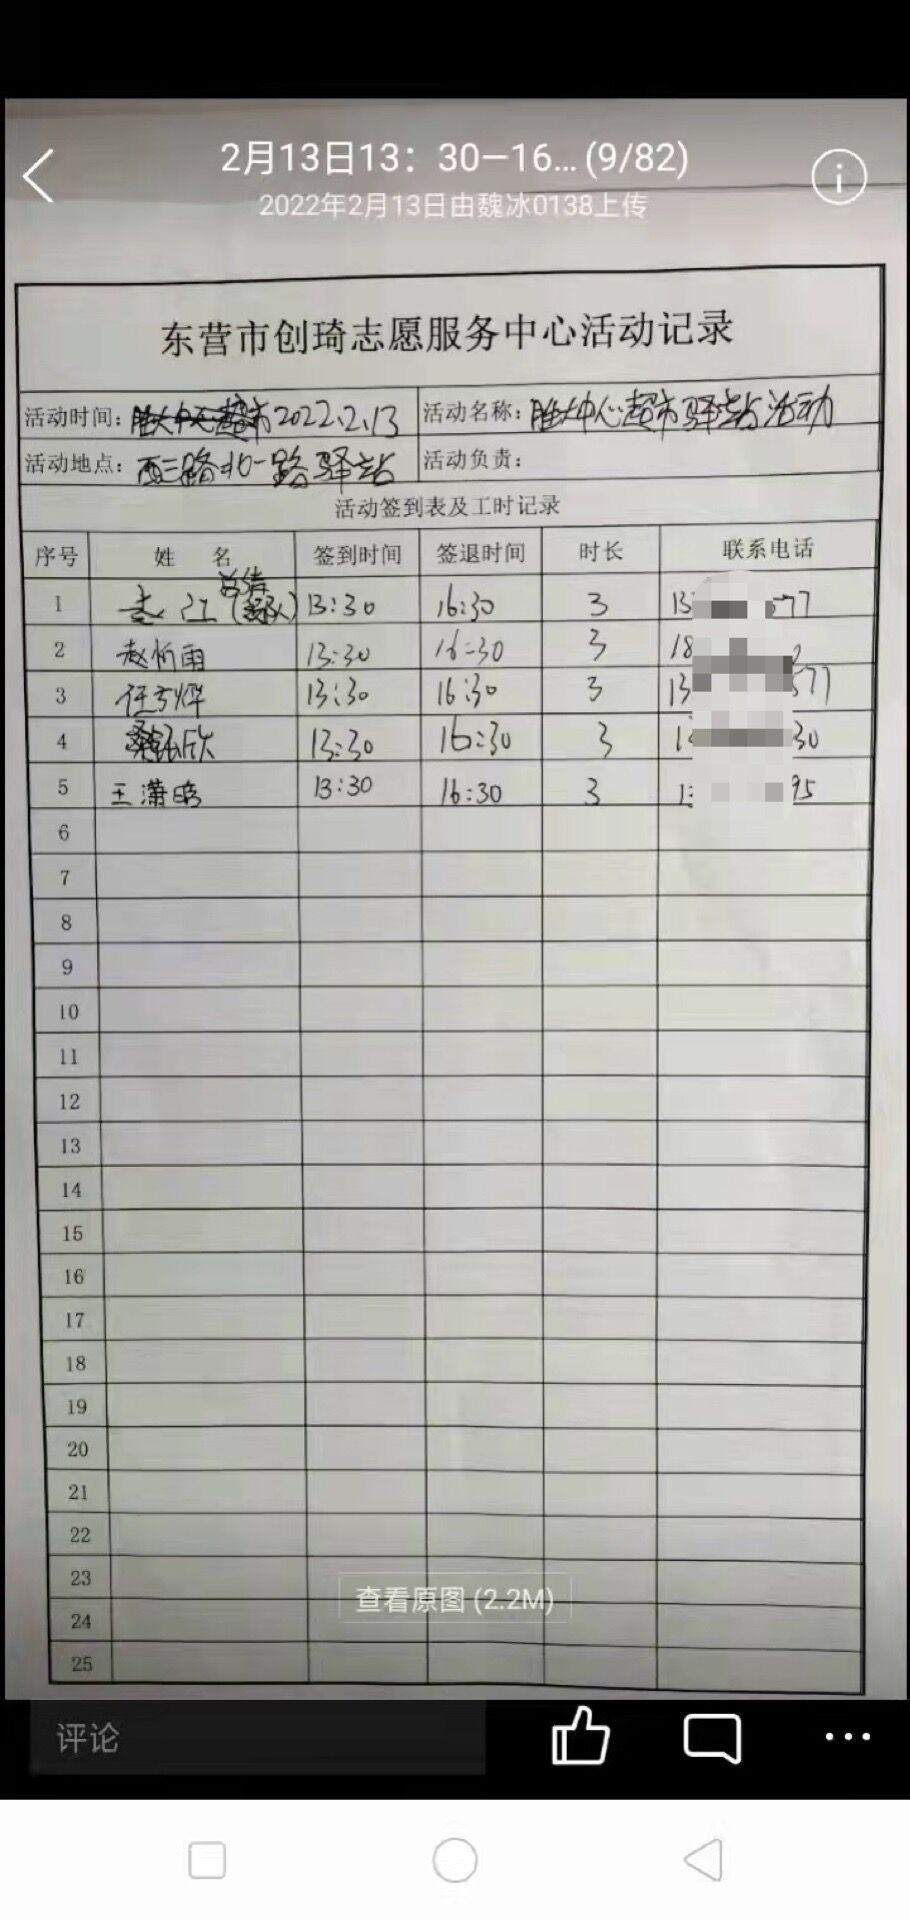 2月13日13：30—16... (9/82)
2022年2月13日由魏冰0138上传
东营市创琦志愿服务中心活动记录
活动时间: 2022.2.13 活动名称: 胜大中心超市驿站活动
活动地点: 西三路北一路驿站 活动负责:
活动签到表及工时记录
序号 姓 名 签到时间 签退时间 时长 联系电话
1 13:30 16:30 3 13 577
2 赵忻雨 13:30 16:30 3 18
3 任方烨 13:30 16:30 3 13 577
4 欣 13:30 16:30 3 1 30
5 王潇晗 13:30 16:30 3 1 95
6
7
8
9
10
11
12
13
14
15
16
17
18
19
20
21
22
23
查看原图 (2.2M)
24
25
评论